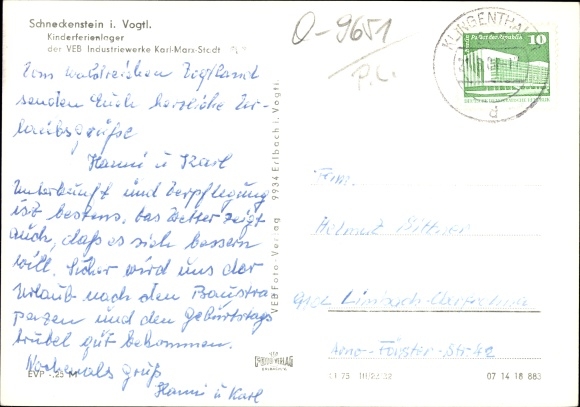 Schneckenstein i. Vogtl.
Kinderferienlager
der VEB Industriewerke Karl-Marx-Stadt
O-9651
P.L.
KLINGENTHAL
d
10
Palast der Republik
Vom waldreichen Vogtland
senden Euch herzliche Ur-
laubsgrüße
Hanni u Karl
Unterkunft und Verpflegung
ist bestens, das Wetter zeigt
auch, daß es sich bessern
will. Sicher wird uns der
Urlaub nach den Baustra
pazen und den Geburtstags
trubel gut bekommen.
Nochmals Gruß
Hanni u Karl
EVP -,25 M
VEB Foto-Verlag 9934 Erlbach i. Vogtl.
VEB
FOTO-VERLAG
ERLBACH
Fam.
Helmut Bittner
9102 Limbach-Oberfrohna
Arno-Förster-Str 42
07 14 18 883